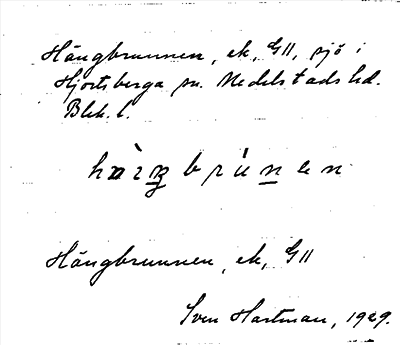 Hängbrunnen, ek, G11, sjö i
Hjortsberga sn. Medelstads hd.
Blek. l.
Hängbrunnen, ek, G11
Sven Hartman, 1929.